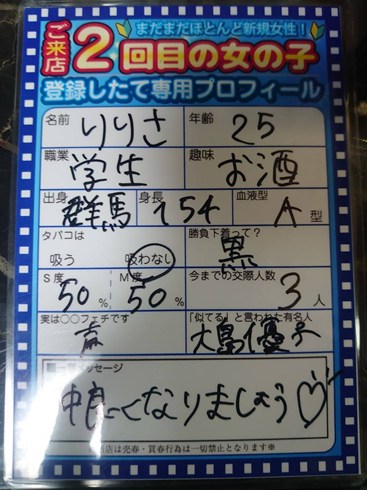 まだまだほとんど新規女性！
ご来店2回目の女の子
登録したて専用プロフィール
名前 りりさ 年齢 25
職業 学生 趣味 お酒
出身 群馬 身長 154 血液型 A 型
タバコは 吸う 吸わない 勝負下着って？ 黒
S度 50% M度 50% 今までの交際人数 3人
実は○○フェチです 声 「似てる」と言われた有名人 大島優子
メッセージ
仲良くなりましょう♡
当店は売春・買春行為は一切禁止となります※